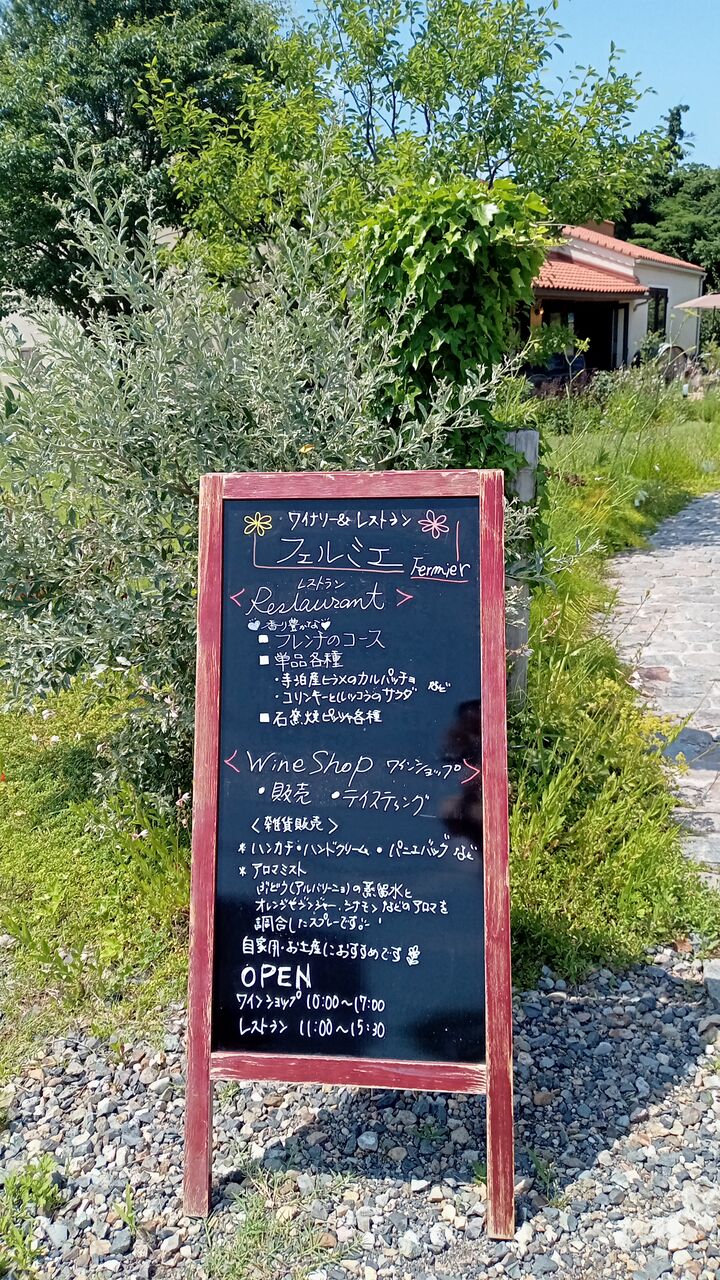 ワイナリー&レストラン
フェルミエ Fermier
レストラン
<Restaurant>
香り豊かな
■フレンチのコース
■単品各種
・寺泊産ヒラメのカルパッチョ
・コリンキーとルッコラのサラダ など
■石窯焼ピッツァ各種
<Wine Shop ワインショップ>
・販売 ・テイスティング
<雑貨販売>
*ハンカチ・ハンドクリーム・パニエバッグ など
*アロマミスト
ぶどう(アルバリーニョ)の蒸留水と
オレンジやジンジャー、シナモンなどのアロマを
調合したスプレーです。
自家用・お土産におすすめです
OPEN
ワインショップ 10:00〜17:00
レストラン 11:00〜15:30